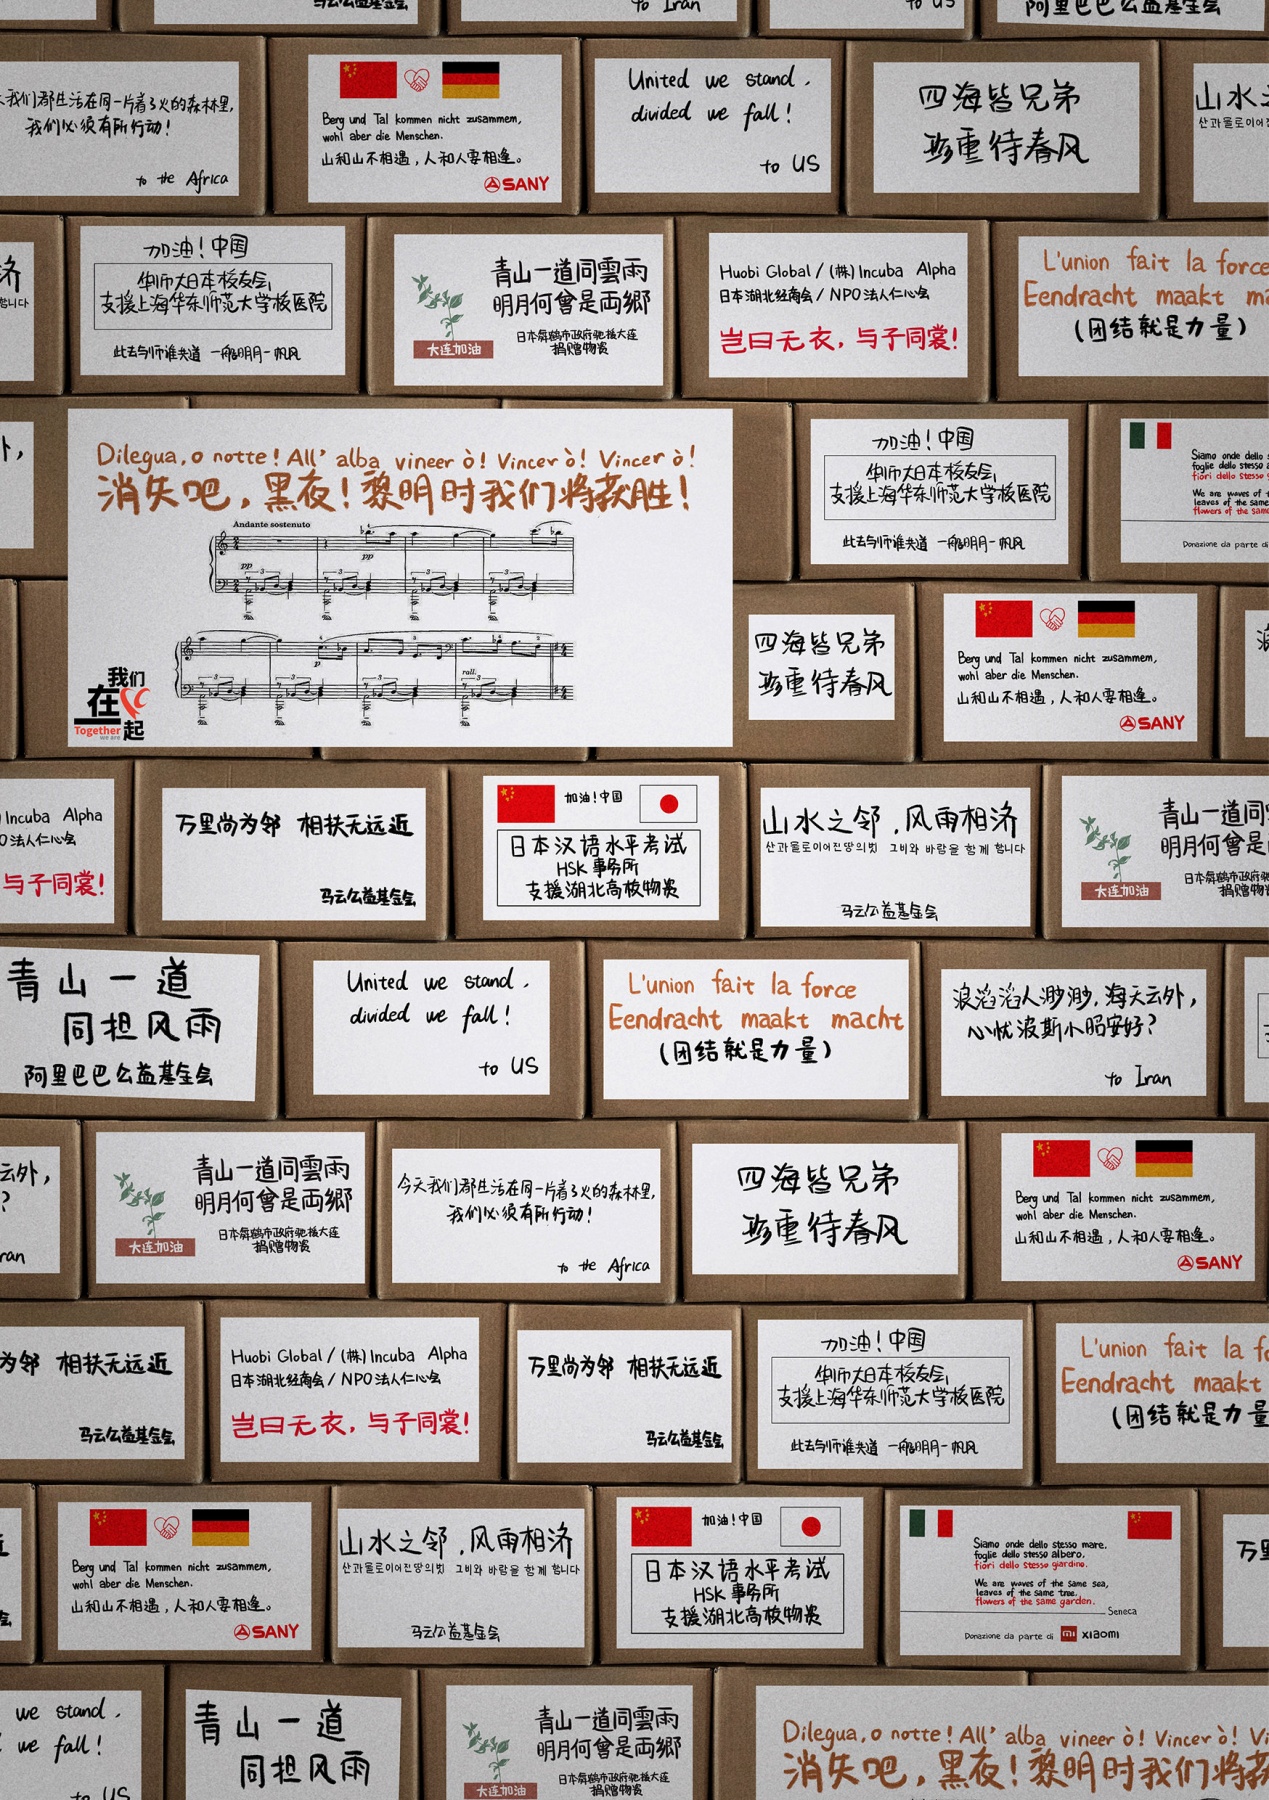 to Iran
to US
阿里巴巴公益基金会
天我们都生活在同一片着了火的森林里,
我们必须有所行动!
to the Africa
Berg und Tal kommen nicht zusammen,
wohl aber die Menschen.
山和山不相遇,人和人要相逢。
SANY
United we stand,
divided we fall!
to US
四海皆兄弟
珍重待春风
山水之
산과물로이어
济
합니다
加油!中国
华师大日本校友会
支援上海华东师范大学校医院
此去与师谁共道 一船明月一帆风
青山一道同雲雨
明月何曾是両郷
大连加油
日本舞鹤市政府驰援大连
捐赠物资
Huobi Global / (株) Incuba Alpha
日本湖北经商会 / NPO 法人仁心会
岂曰无衣,与子同裳!
L'union fait la force
Eendracht maakt ma
(团结就是力量)
外,
Dilegua, o notte! All' alba vineer ò! Vincer ò! Vincer ò!
消失吧,黑夜!黎明时我们将获胜!
Andante sostenuto
pp
pp
p
rall.
我们
在
起
Together
we are
加油!中国
华师大日本校友会
支援上海华东师范大学校医院
此去与师谁共道 一船明月一帆风
Siamo onde dello s
foglie dello stesso a
fiori dello stesso g
We are waves of t
leaves of the same
flowers of the same
Donazione da parte di
四海皆兄弟
珍重待春风
Berg und Tal kommen nicht zusammen,
wohl aber die Menschen.
山和山不相遇,人和人要相逢。
SANY
Incuba Alpha
O 法人仁心会
与子同裳!
万里尚为邻 相扶无远近
马云公益基金会
加油!中国
日本汉语水平考试
HSK 事务所
支援湖北高校物资
山水之邻,风雨相济
산과물로이어진땅의벗 그비와 바람을 함께 합니다
马云公益基金会
青山一道同雲
明月何曾是
大连加油
日本舞鹤市政府驰
捐赠物资
青山一道
同担风雨
阿里巴巴公益基金会
United we stand,
divided we fall!
to US
L'union fait la force
Eendracht maakt macht
(团结就是力量)
浪滔滔人渺渺,海天云外,
心忧波斯小昭安好?
to Iran
云外,
?
ran
青山一道同雲雨
明月何曾是両郷
大连加油
日本舞鹤市政府驰援大连
捐赠物资
今天我们都生活在同一片着了火的森林里,
我们必须有所行动!
to the Africa
四海皆兄弟
珍重待春风
Berg und Tal kommen nicht zusammen,
wohl aber die Menschen.
山和山不相遇,人和人要相逢。
SANY
为邻 相扶无远近
马云公益基金会
Huobi Global / (株) Incuba Alpha
日本湖北经商会 / NPO 法人仁心会
岂曰无衣,与子同裳!
万里尚为邻 相扶无远近
马云公益基金会
加油!中国
华师大日本校友会
支援上海华东师范大学校医院
此去与师谁共道 一船明月一帆风
L'union fait la fo
Eendracht maakt
(团结就是力量
Berg und Tal kommen nicht zusammen,
wohl aber die Menschen.
山和山不相遇,人和人要相逢。
SANY
山水之邻,风雨相济
산과물로이어진땅의벗 그비와 바람을 함께 합니다
马云公益基金会
加油!中国
日本汉语水平考试
HSK 事务所
支援湖北高校物资
Siamo onde dello stesso mare,
foglie dello stesso albero,
fiori dello stesso giardino.
We are waves of the same sea,
leaves of the same tree.
flowers of the same garden.
Seneca
Donazione da parte di mi xiaomi
万里
we stand,
we fall!
to US
青山一道
同担风雨
青山一道同雲雨
明月何曾是両郷
大连加油
日本舞鹤市政府驰援大连
捐赠物资
Dilegua, o notte! All' alba vineer ò! Vincer ò! Vi
消失吧,黑夜!黎明时我们将获